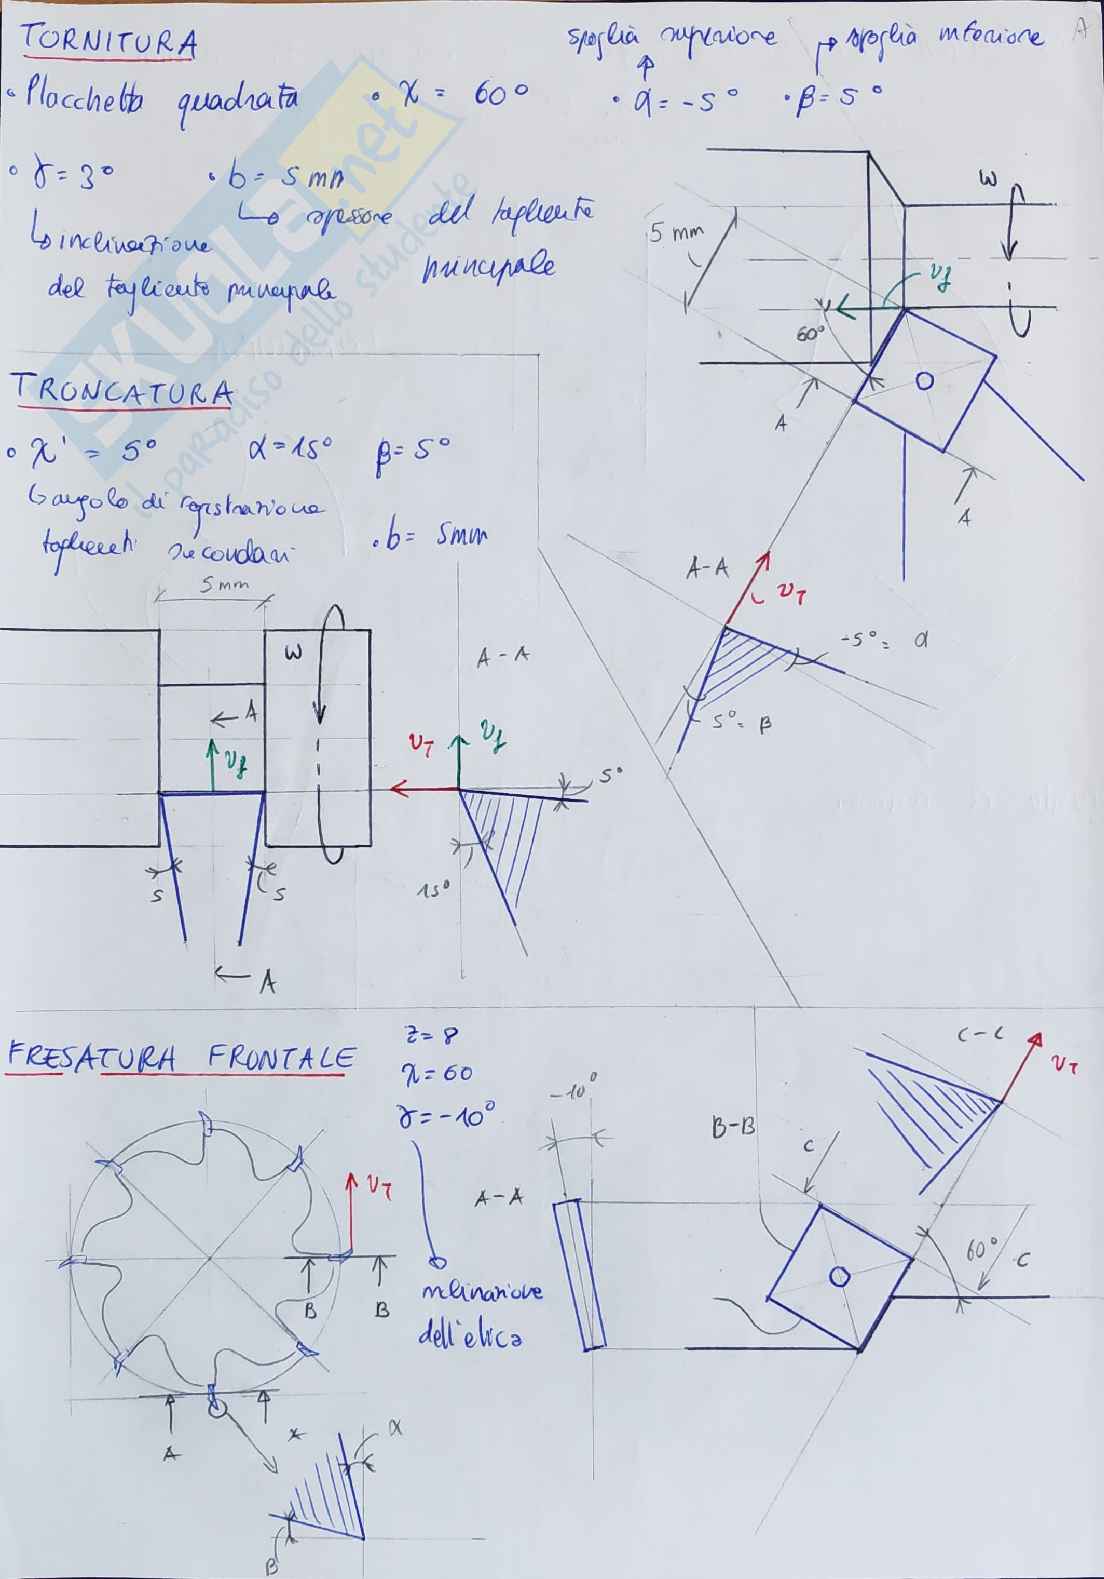 TORNITURA
spoglia superiore
spoglia inferiore
A
• Placchetta quadrata
• χ = 60°
• α = -5°
• β = 5°
• γ = 3°
• b = 5 mm
↳ inclinazione
del tagliente principale
↳ spessore del tagliente
principale
ω
5 mm
vf
60°
A
A
SKUOLA.net
il paradiso dello studente
TRONCATURA
• χ' = 5°
α = 15°
β = 5°
↳ angolo di registrazione
taglienti secondari
• b = 5mm
5 mm
ω
A
vf
5
5
A
A-A
vT
vf
5°
15°
A-A
vT
-5° = α
5° = β
FRESATURA FRONTALE
z = 8
χ = 60
γ = -10°
inclinazione
dell'elica
vT
B
B
A
*
α
β
-10°
A-A
B-B
C
C-C
vT
60°
C